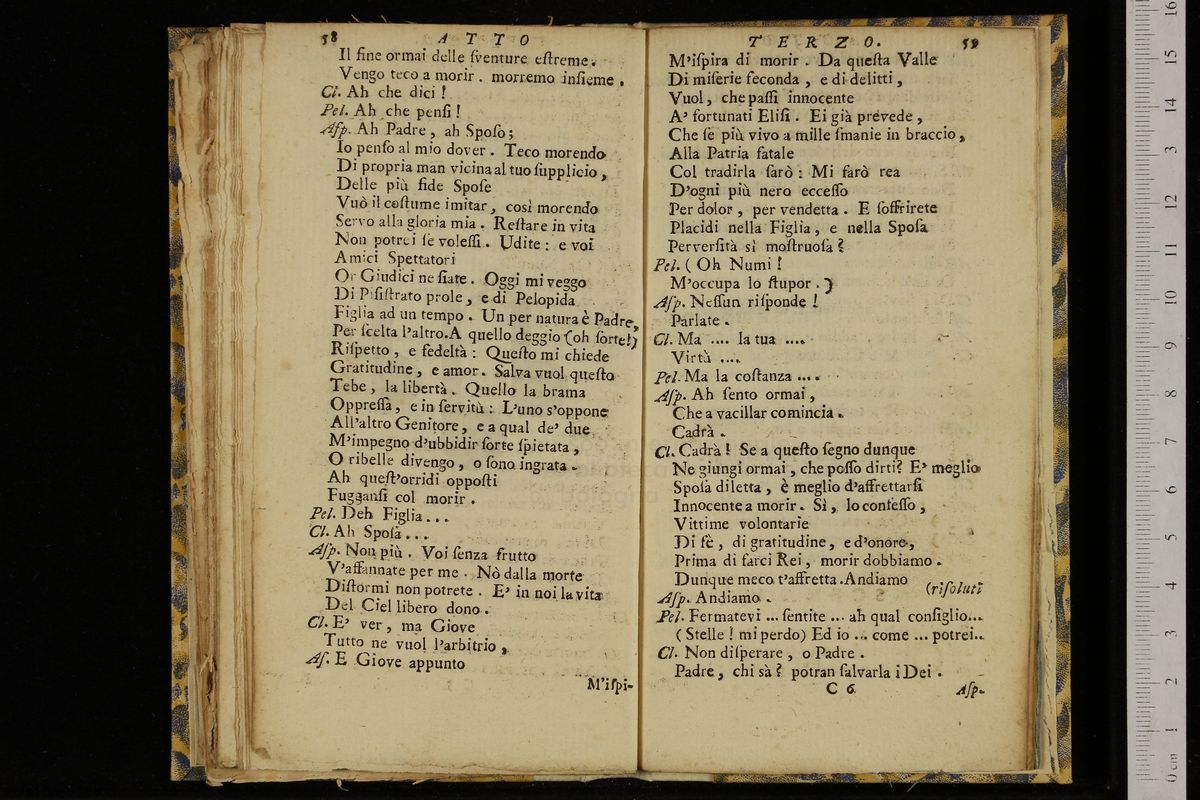 58 ATTO
Il fine ormai delle ſventure eſtreme.
Vengo teco a morir. morremo inſieme.
Cl. Ah che dici!
Pel. Ah che penſi!
Aſp. Ah Padre, ah Spoſo;
Io penſo al mio dover. Teco morendo
Di propria man vicina al tuo ſupplicio,
Delle più fide Spoſe
Vuò il coſtume imitar, così morendo
Servo alla gloria mia. Reſtare in vita
Non potrei ſe voleſſi. Udite: e voi
Amici Spettatori
Or Giudici ne ſiate. Oggi mi veggo
Di Piſiſtrato prole, e di Pelopida
Figlia ad un tempo. Un per natura è Padre,
Per ſcelta l'altro. A quello deggio (oh ſorte!)
Riſpetto, e fedeltà: Queſto mi chiede
Gratitudine, e amor. Salva vuol queſto
Tebe, la libertà. Quello la brama
Oppreſſa, e in ſervitù: L'uno s'oppone
All'altro Genitore, e a qual de' due
M'impegno d'ubbidir ſorte ſpietata,
O ribelle divengo, o ſono ingrata.
Ah queſt'orridi oppoſti
Fugganſi col morir.
Pel. Deh Figlia...
Cl. Ah Spoſa...
Aſp. Non più. Voi ſenza frutto
V'affannate per me. Nò dalla morte
Diſtormi non potrete. E' in noi la vita
Del Ciel libero dono.
Cl. E' ver, ma Giove
Tutto ne vuol l'arbitrio,
Aſ. E Giove appunto
M'iſpi-
TERZO. 59
M'iſpira di morir. Da queſta Valle
Di miſerie feconda, e di delitti,
Vuol, che paſſi innocente
A' fortunati Eliſi. Ei già prevede,
Che ſe più vivo a mille ſmanie in braccio,
Alla Patria fatale
Col tradirla ſarò: Mi farò rea
D'ogni più nero ecceſſo
Per dolor, per vendetta. E ſoffrirete
Placidi nella Figlia, e nella Spoſa
Perverſità sì moſtruoſa?
Pel. (Oh Numi!
M'occupa lo ſtupor.)
Aſp. Neſſun riſponde!
Parlate.
Cl. Ma .... la tua ....
Virtù ....
Pel. Ma la coſtanza ....
Aſp. Ah ſento ormai,
Che a vacillar comincia.
Cadrà.
Cl. Cadrà! Se a queſto ſegno dunque
Ne giungi ormai, che poſſo dirti? E' meglio
Spoſa diletta, è meglio d'affrettarſi
Innocente a morir. Sì, lo confeſſo,
Vittime volontarie
Di fè, di gratitudine, e d'onore,
Prima di farci Rei, morir dobbiamo.
Dunque meco t'affretta. Andiamo
(riſoluti
Aſp. Andiamo.
Pel. Fermatevi ... ſentite ... ah qual conſiglio...
(Stelle! mi perdo) Ed io ... come ... potrei...
Cl. Non diſperare, o Padre.
Padre, chi sà? potran ſalvarla i Dei.
C 6 Aſp.